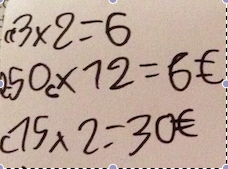 3x2=6
50cx12=6€
15x2=30€